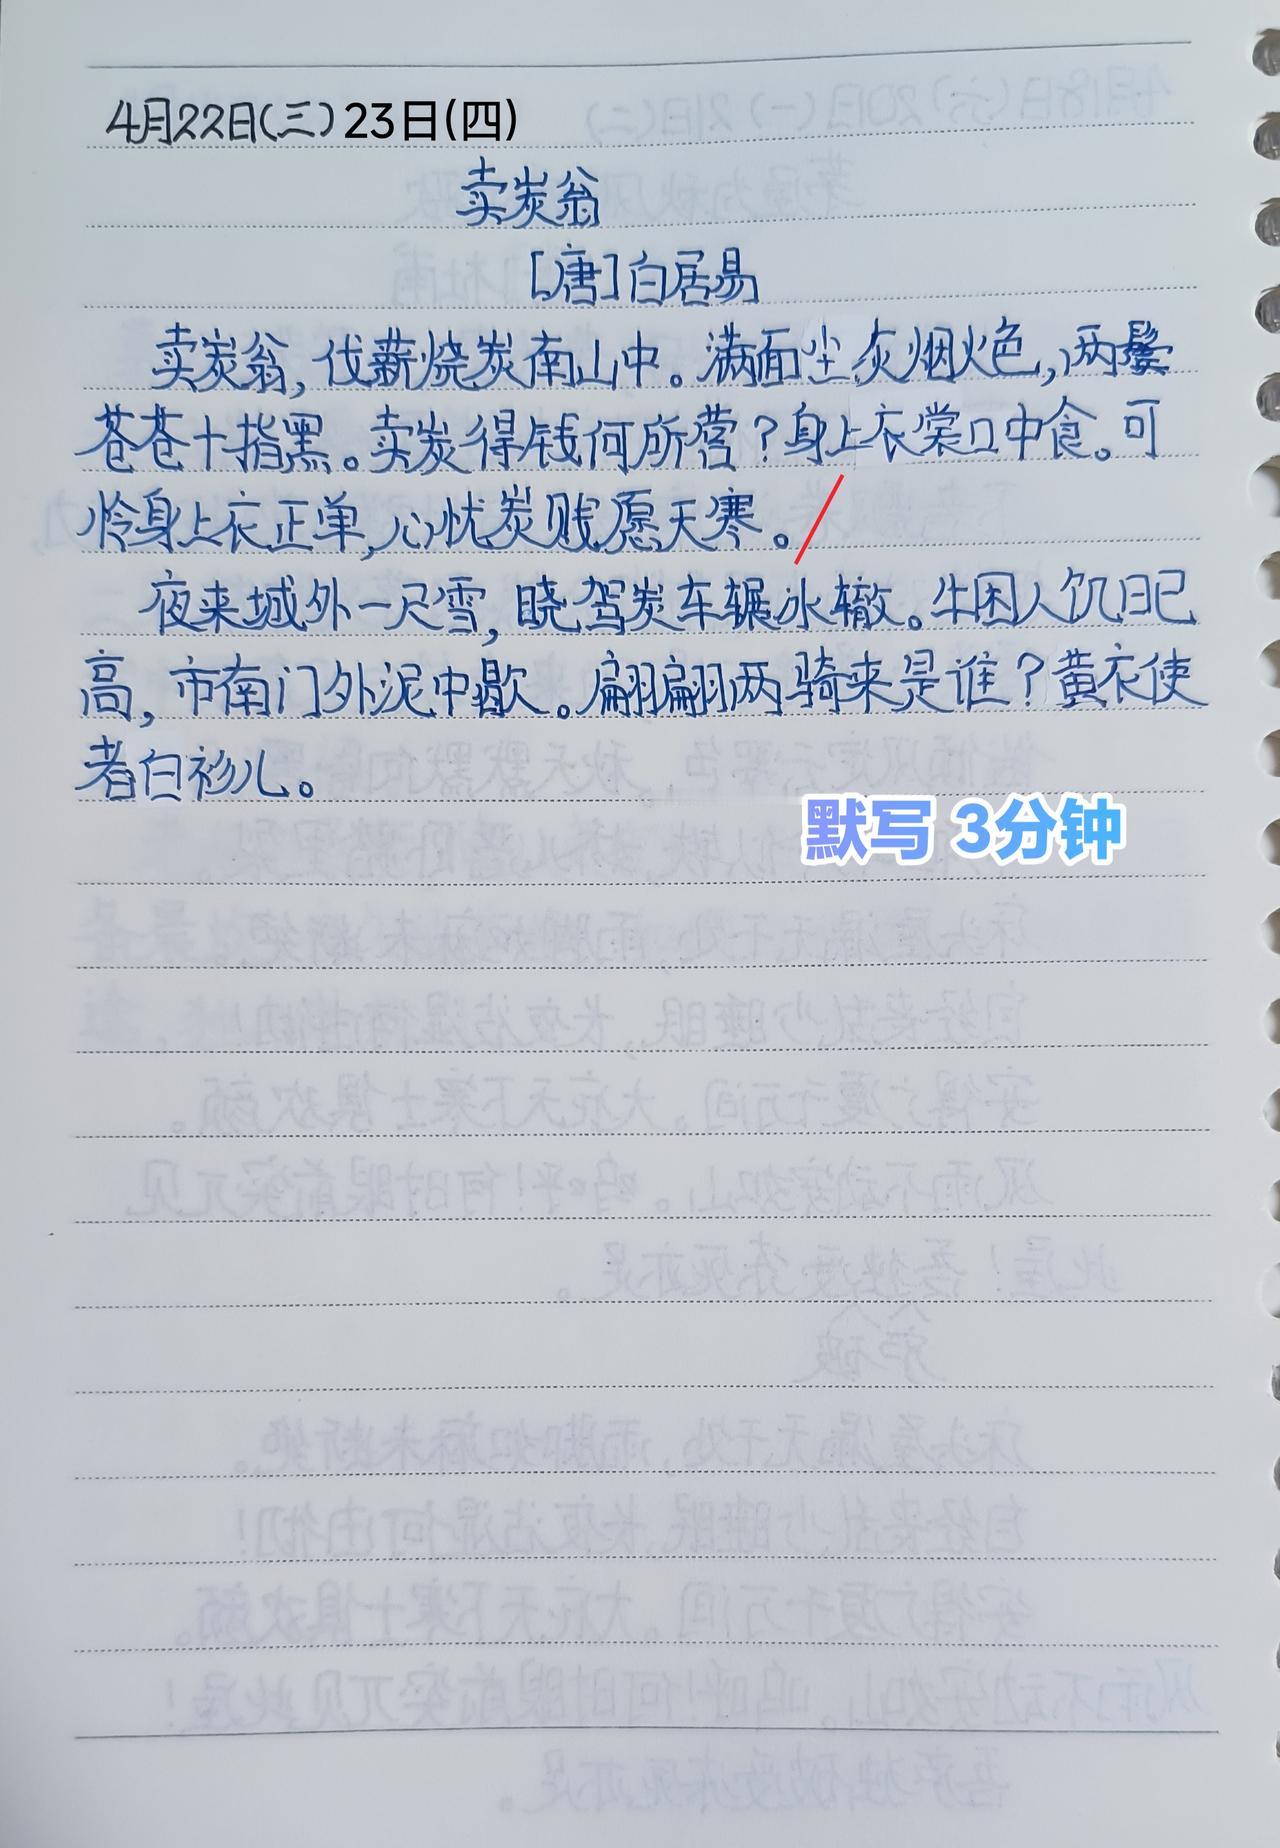 4月22日(三)23日(四)
卖炭翁
[唐]白居易
卖炭翁,伐薪烧炭南山中。满面尘灰烟火色,两鬓
苍苍十指黑。卖炭得钱何所营?身上衣裳口中食。可
怜身上衣正单,心忧炭贱愿天寒。
夜来城外一尺雪,晓驾炭车辗冰辙。牛困人饥日已
高,市南门外泥中歇。翩翩两骑来是谁?黄衣使
者白衫儿。
默写 3分钟